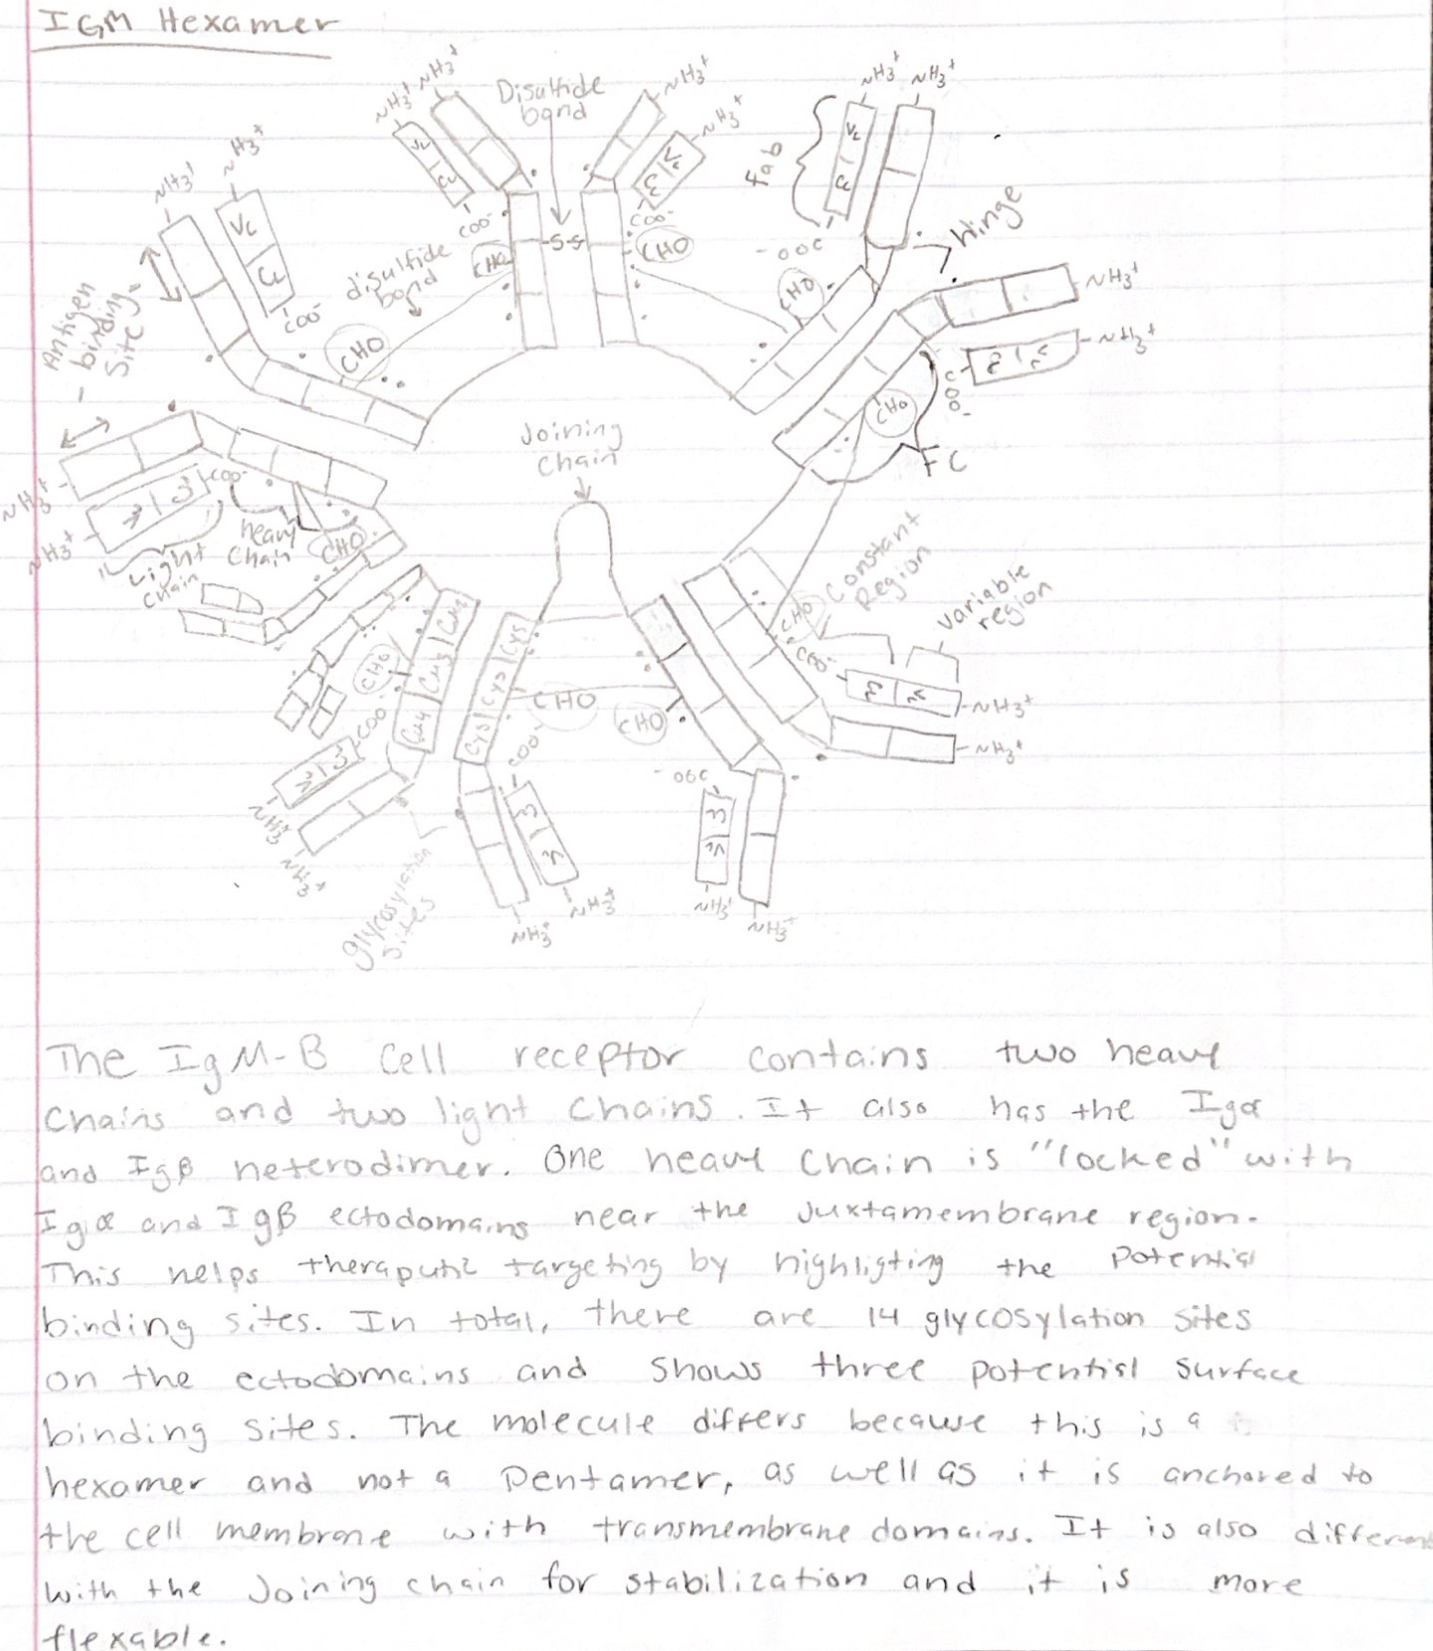 IGM Hexamer
NH3+ NH3+
Disulfide
bond
NH3+
NH3+
NH3+ NH3+
NH3+
VL CL
VL CL
NH3+
NH3+
VL
CL
COO-
Fab
Hinge
COO-
-S-S-
COO-
-OOC
CHO
CHO
CHO
disulfide
bond
NH3+
COO-
CHO
NH3+
COO-
CHO
FC
Antigen
binding
Site
Joining
Chain
NH3+
NH3+
COO-
heavy
Chain
CHO
Light
chain
Constant
Region
variable
region
CHO
COO-
NH3+
NH3+
CHO
COO-
Cμ4 Cμ3 Cμ2
Cys Cys Cys
CHO
COO-
CHO
-OOC
NH3+
NH3+
NH3+
NH3+
NH3+
NH3+
glycosylation
sites
The IgM-B Cell receptor contains two heavy
Chains and two light Chains. It also has the Igα
and Igβ heterodimer. One heavy Chain is "locked" with
Igα and Igβ ectodomains near the Juxtamembrane region.
This helps theraputic targeting by highligting the Potential
binding sites. In total, there are 14 glycosylation sites
on the ectodomains and shows three potential surface
binding sites. The molecule differs because this is a
hexamer and not a Pentamer, as well as it is anchored to
the cell membrane with transmembrane domains. It is also different
with the Joining chain for stabilization and it is more
flexable.